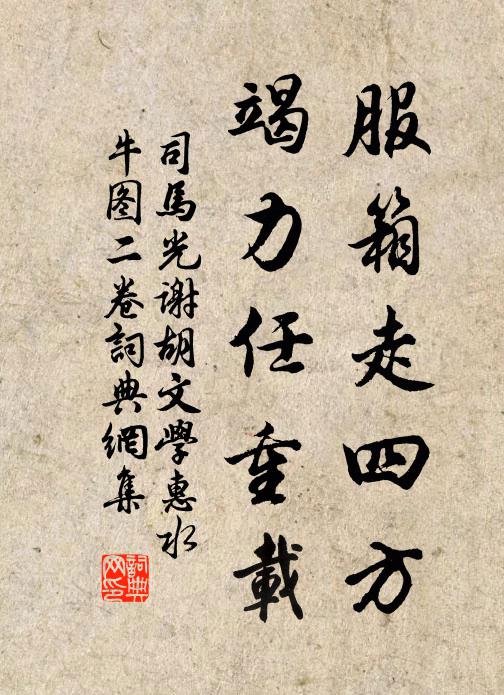 服箱走四方
竭力任重載
司馬光谢胡文學惠水
牛图二卷詞典網集
詞典网印